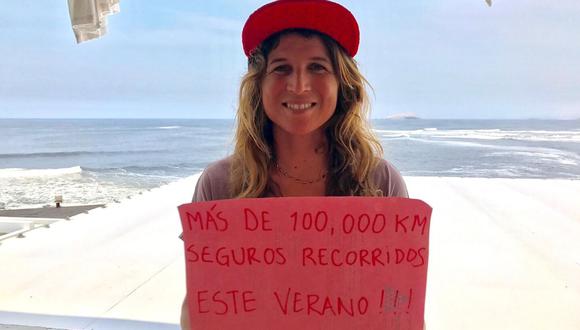 MÁS DE 100,000 KM
SEGUROS RECORRIDOS
ESTE VERANO !!!